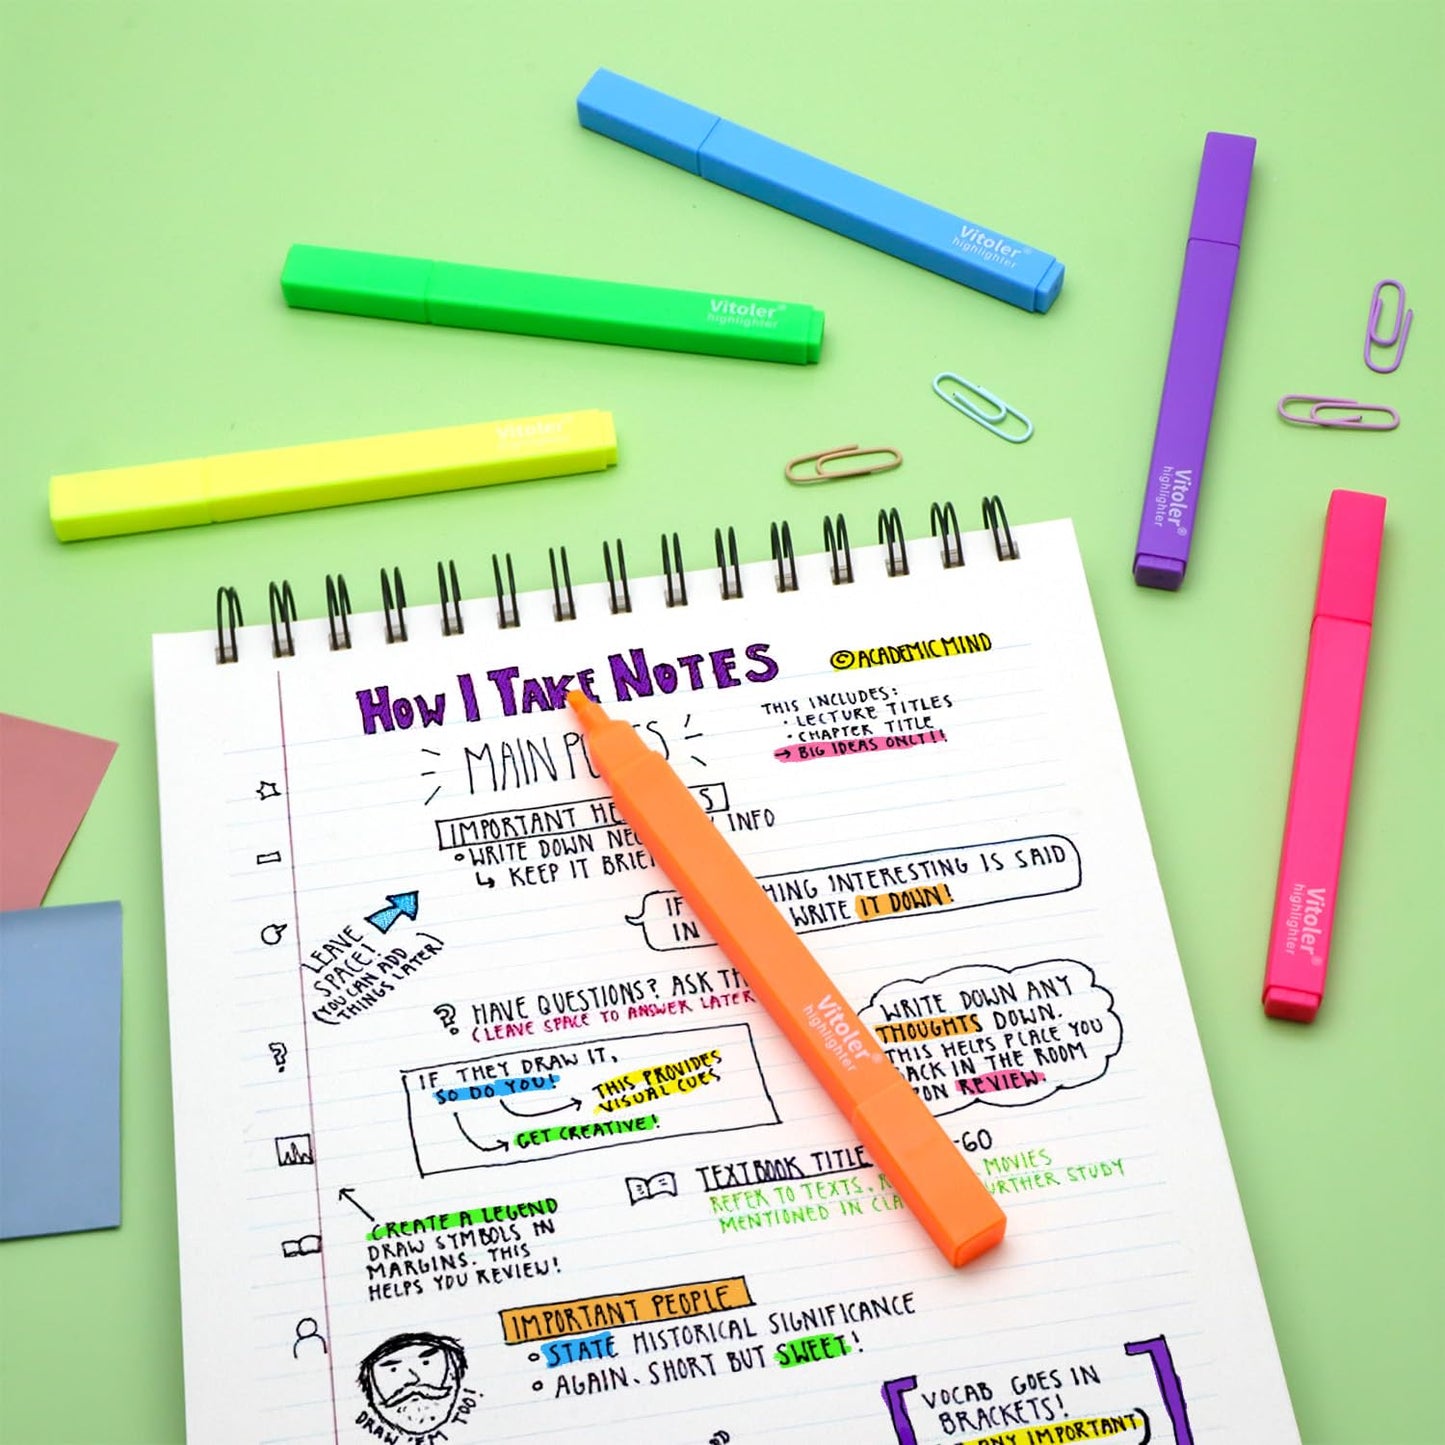 Vitoler®
highlighter
Vitoler®
highlighter
Vitoler
Vitoler®
highlighter
Vitoler®
highlighter
HOW I TAKE NOTES
© ACADEMIC MIND
MAIN
THIS INCLUDES:
• LECTURE TITLES
• CHAPTER TITLE
→ BIG IDEAS ONLY!!
IMPORTANT
INFO
• WRITE DOWN
↳ KEEP IT
IF INTERESTING IS SAID
IN WRITE IT DOWN!
LEAVE
SPACE!
(YOU CAN ADD
THINGS LATER)
? HAVE QUESTIONS? ASK
(LEAVE SPACE TO ANSWER LATER
Vitoler®
highlighter
WRITE DOWN ANY
THOUGHTS DOWN.
THIS HELPS PLACE YOU
IN THE ROOM
REVIEW.
?
IF THEY DRAW IT,
SO DO YOU!
THIS PROVIDES
VISUAL CUES
GET CREATIVE!
TEXTBOOK TITLE -60
REFER TO TEXTS, MOVIES
MENTIONED IN FURTHER STUDY
CREATE A LEGEND
DRAW SYMBOLS IN
MARGINS. THIS
HELPS YOU REVIEW!
IMPORTANT PEOPLE
• STATE HISTORICAL SIGNIFICANCE
• AGAIN. SHORT BUT SWEET!
DRAW 'EM TOO!
VOCAB GOES IN
BRACKETS!
ANY IMPORTANT